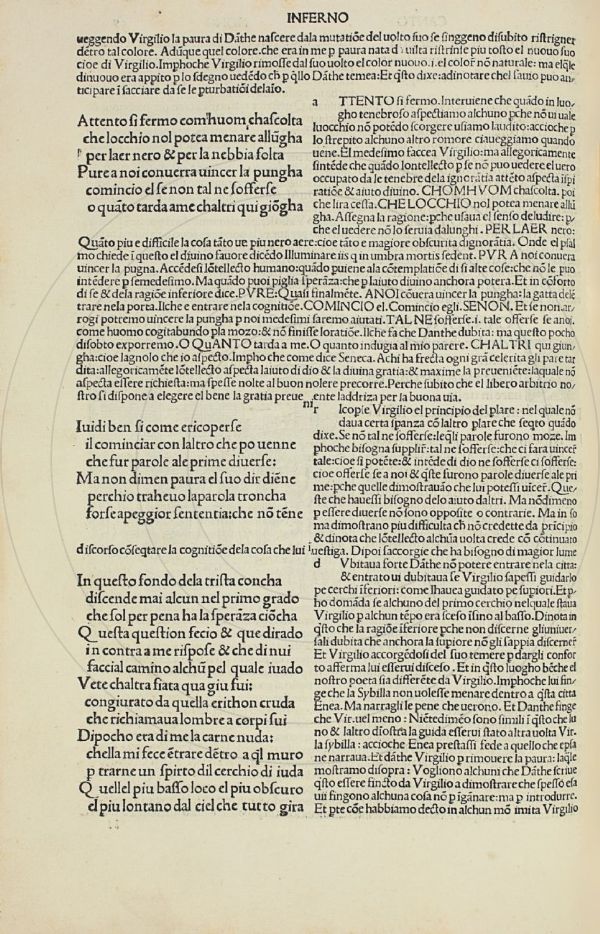 INFERNO
ueggendo Virgilio la paura di Dāthe nascere dala mutatiōe del uolto suo se singeno disubito ristrigner
dētro tal colore. Adūque quel colore.che era in me p paura nata di uilta ristrinse piu tosto el nuouo suo
cioe di Virgilio.Imphoche Virgilio rimosse dal suo uolto el color nuouo.i.el color nō naturale: ma elqle
dinuouo era appito p lo sdegno uedēdo ch p qllo Dāthe temea: Et qsto dixe: adinotare chel sauio puo an/
ticipare i sacciare da se le pturbatiōi delaio.
Attento si fermo com huom chascolta
che locchio nol potea menare allūgha
per laer nero & per la nebbia folta
Pure a noi conuerra uincer la pungha
comincio el se non tal ne sofferse
o quāto tarda ame chaltri qui giōgha
a TTENTO si fermo. Interuiene che quādo in luo/
gho tenebroso aspectiamo alchuno pche nō ui uale
luocchio nō potēdo scorgere usiamo laudito: accioche p
lo strepito alchuno altro romore ciaueggiamo quando
uiene.El medesimo faccea Virgilio: ma allegoricamente
sintēde che quādo lontellecto p se nō puo uedere el uero
occupato da le tenebre dela ignorātia attēto aspecta ispi
ratiōe & aiuto diuino. CHOMHVOM chascolta. poi
che lira cessa. CHE LOCCHIO nol potea menare allū
gha. Assegna la ragione: pche usaua el senso deludire: p/
che el uedere nō lo seruia dalunghi . PER LAER nero:
Quāto piu e difficile la cosa tāto ue piu nero aere: cioe tāto e magiore obscurita dignorātia. Onde el psal
mo chiede i questo el diuino fauore dicēdo Illuminare iis q in umbra mortis sedent. PVRA noi conuera
uincer la pugna. Accēdesi lōtellecto humano: quādo puiene ala cōtemplatiōe di si alte cose: che nō le puo
intēdere p semedesimo. Ma quādo puoi piglia sperāza: che p laiuto diuino anchora potera. Et in cōforto
di se & dela ragiōe inferiore dice. PVRE: Quasi finalmēte. ANOI cōuera uincer la pungha: la gatta delē
trare nela porta. Ilche e entrare nela cognitiōe. COMINCIO el. Comincio egli. SENON. Et se non ar/
rogi potremo uincere la pungha p noi medesimi saremo aiutati. TAL NE sofferse.i. tale offerse se anoi.
come huomo cogitabundo pla mozo: & nō finisse loratiōe. Ilche fa che Danthe dubita: ma questo pocho
disobto exporremo. O QVANTO tarda a me. O quanto indugia al mio parere. CHALTRI qui giun/
gha: cioe lagnolo che io aspecto. Impho che come dice Seneca. Achi ha frecta ogni grā celerita gli pare tar
dita: allegoricamēte lōtellecto aspecta laiuto di dio & la diuina gratia: & maxime la preueniēte: laquale nō
aspecta essere richiesta: ma spesse nolte al buon nolere precorre. Perche subito che el libero arbitrio no/
stro si dispone a elegere el bene la gratia preueniente laddriza per la buona uia.
Iuidi ben si come ericoperse
il cominciar con laltro che po uenne
che fur parole ale prime diuerse:
Ma non dimen paura el suo dir diēne
perchio traheuo la parola troncha
forse apeggior sententia: che nō tēne
r Icopie Virgilio el principio del plare : nel quale nō
daua certa spanza cō laltro plare che seqto quādo
dixe. Se nō tal ne sofferse: leqli parole furono moze. Im
phoche bisogna supplir: tal ne sofferse: che ci sara uincer
tale: cioe si potēte: & intēde di dio ne sofferse ci sofferse:
cioe offerse se a noi & qste furono parole diuerse ale pri
me: pche quelle dimostrauāo che lui potessi uīcer. Que/
ste che hauessi bisogno delo aiuto daltri. Ma nōdimeno
p essere diuerse nō sono opposite o contrarie. Ma in so
ma dimostrano piu difficulta ch nō credette da pricipio
& dinota che lōtellecto alchūa uolta crede cō cōtinuato
discorso cōseqtare la cognitiōe dela cosa che lui iuestiga. Dipoi saccorgie che ha bisogno di magior lume
In questo fondo dela trista concha
discende mai alcun nel primo grado
che sol per pena ha la sperāza ciōcha
Questa question fecio & que dirado
in contra a me rispose & che di nui
faccial camino alchū pel quale iuado
Vete chaltra fiata qua giu fui:
congiurato da quella erithon cruda
che richiamaua lombre a corpi sui
Dipocho era di me la carne nuda:
chella mi fece ētrare dētro a ql muro
p trarne un spirto dil cerchio di iuda
Quellel piu basso loco el piu obscuro
el piu lontano dal ciel che tutto gira
d Vbitaua forte Dāthe nō potere entrare nela citta:
& entrato ui dubitaua se Virgilio sapessi guidarlo
pe cerchi iferiori: come lhauea guidato pe supiori. Et p/
ho domāda se alchuno del primo cerchio nelquale staua
Virgilio p alchun tēpo era sceso isino al basso. Dinota in
qsto che la ragiōe iferiore pche non discerne gliuniuer/
sali dubita che anchora la supiore nō gli sappia discerner
Et Virgilio accorgēdosi del suo temere p dargli confor
to afferma lui esserui disceso. Et in qsto luogho bēche el
nostro poeta sia differēte da Virgilio. Imphoche lui fin/
ge che la Sybilla non uolesse menare dentro a qsta citta
Enea. Ma narragli le pene che uerono. Et Danthe finge
che Vir. uel meno : Niētedimēo sono simili i qsto che lu
no & laltro diōstra la guida esserui stato altra uolta Vir.
la sybilla : accioche Enea prestassi fede a quello che epsa
ne narraua. Et dāthe Virgilio p rimouere la paura: laqle
mostramo disopra : Vogliono alchuni che Dāthe scriue
qsto essere fincto da Virgilio a dimostrare che spesso e sa
uii fingono alchuna cosa nō p igānare: ma p introdurre.
Et pte cōe habbiamo decto in alchun mō imita Virgilio